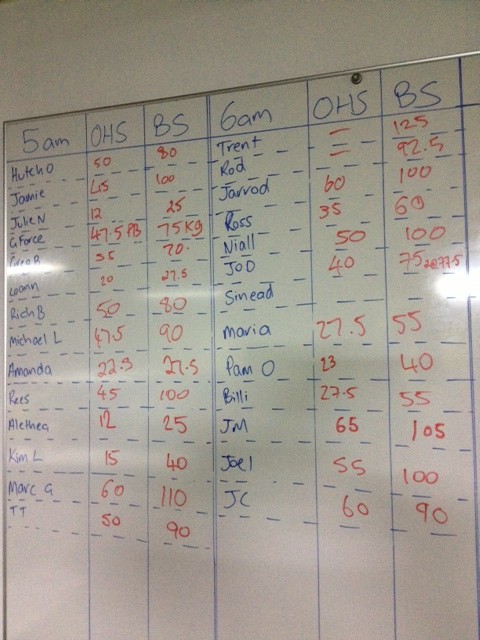 5am OHS BS
Hutch O 50 80
Jamie 45 100
Julie N 12 25
GForce 47.5 PB 75Kg
Greg B 35 70
Leann 20 27.5
Rich B 50 80
Michael L 47.5 90
Amanda 22.5 27.5
Rees 45 100
Alethea 12 25
Kim L 15 40
Marc G 60 110
TT 50 90
6am OHS BS
Trent — 125
Rod — 92.5
Jarrod 60 100
Ross 35 60
Niall 50 100
JoD 40 75
Sinead
Maria 27.5 55
Pam O 23 40
Billi 27.5 55
JM 65 105
Joel 55 100
JC 60 90